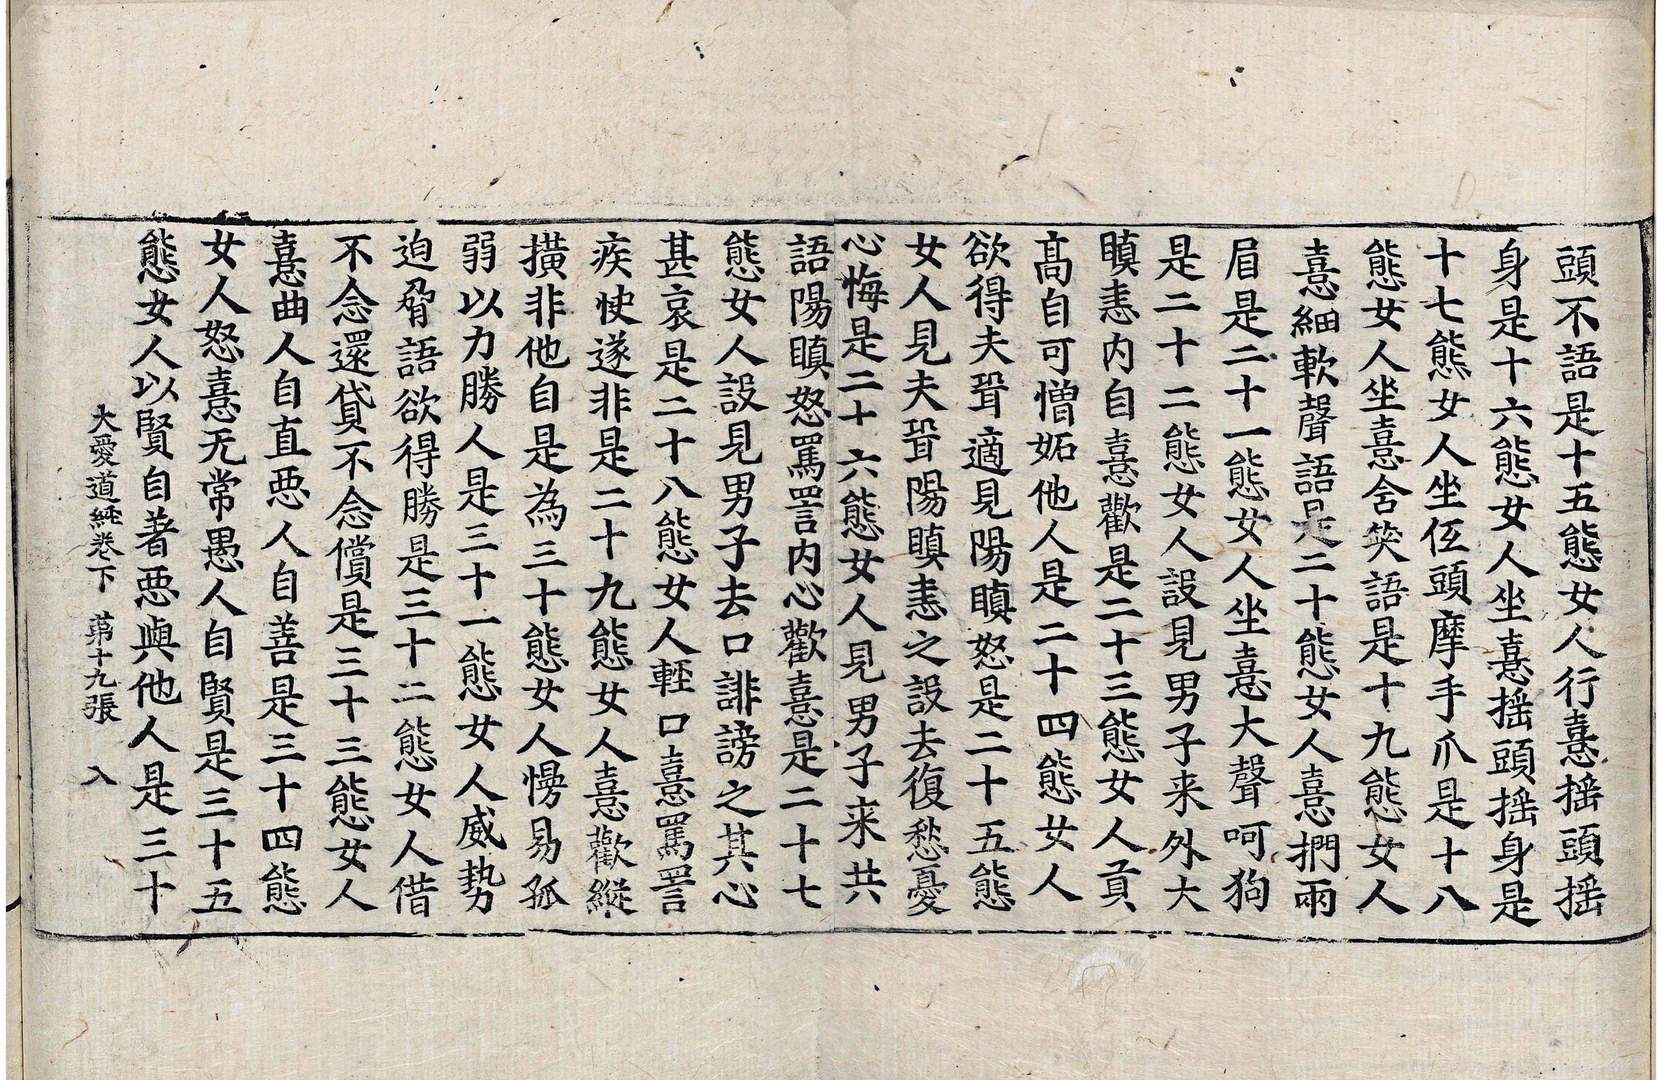 頭不語是十五態女人行憙揺頭揺
身是十六態女人坐憙揺頭揺身是
十七態女人坐仾頭摩手爪是十八
態女人坐憙含笑語是十九態女人
憙細軟聲語是二十態女人憙捫兩
眉是二十一態女人坐憙大聲呵狗
是二十二態女人設見男子来外大
瞋恚内自憙歡是二十三態女人貢
高自可憎妬他人是二十四態女人
欲得夫壻適見陽瞋怒是二十五態
女人見夫壻陽瞋恚之設去復愁憂
心悔是二十六態女人見男子来共
語陽瞋怒罵詈内心歡憙是二十七
態女人設見男子去口誹謗之其心
甚哀是二十八態女人輕口憙罵詈
疾快遂非是二十九態女人憙歡縱
撗非他自是為三十態女人慢易孤
弱以力勝人是三十一態女人威勢
迫脅語欲得勝是三十二態女人借
不念還貸不念償是三十三態女人
憙曲人自直惡人自善是三十四態
女人怒憙无常愚人自賢是三十五
態女人以賢自著惡與他人是三十
大愛道經卷下 苐十九張 入